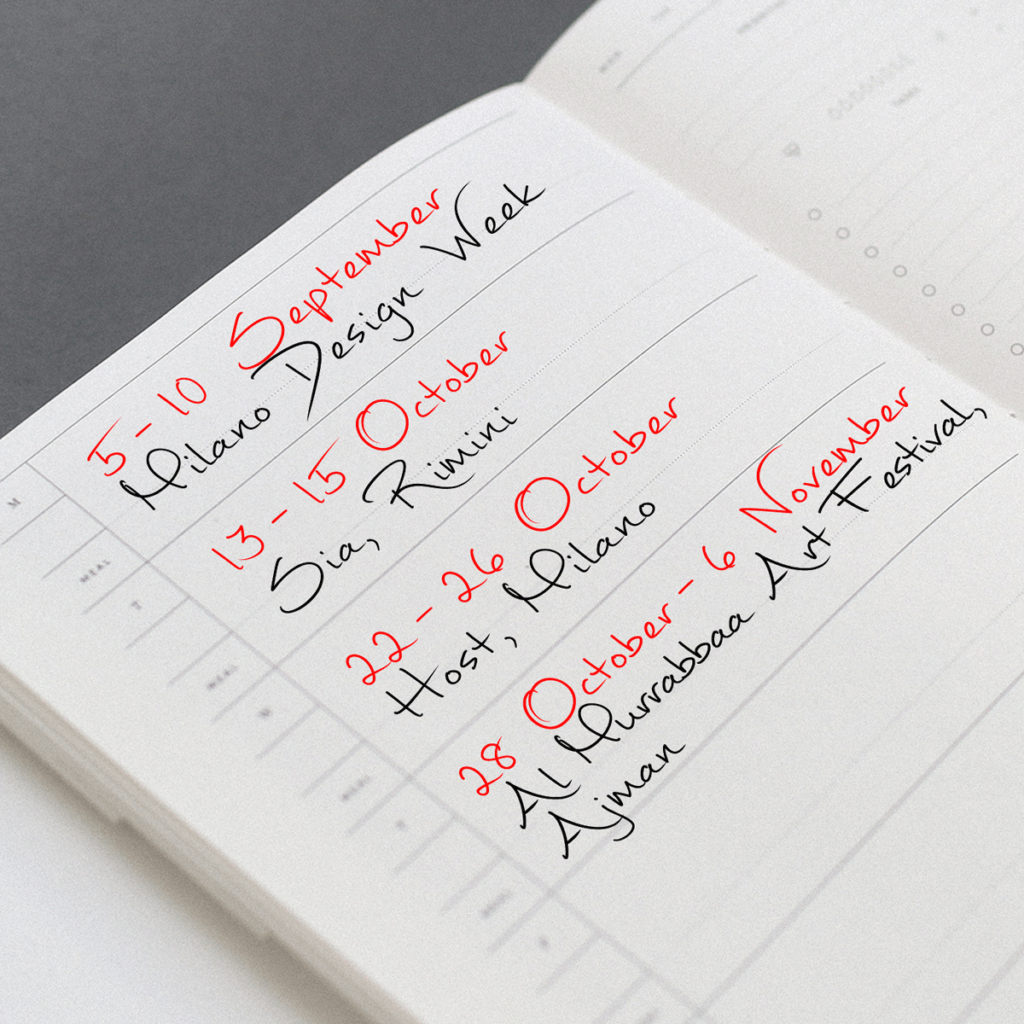 5 - 10 September
Milano Design Week
13 - 15 October
Sia, Rimini
22 - 26 October
Host, Milano
28 October - 6 November
Al Murrabbaa Art Festival,
Ajman
M
MEAL
MEAL